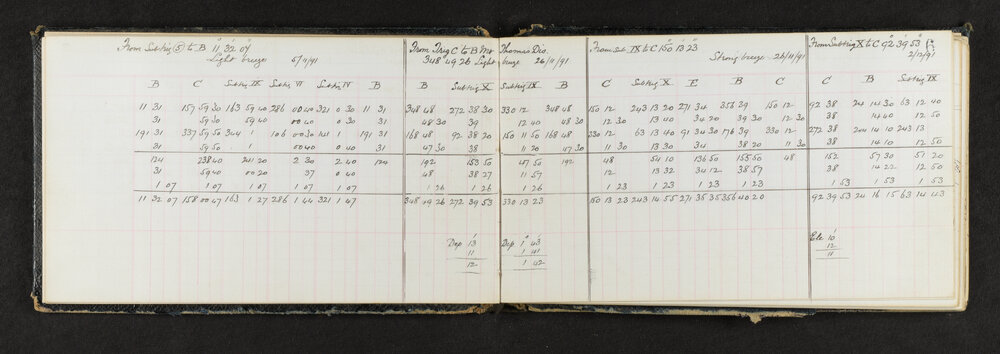 From Subtrig (5) to B 11 32 07
Light breeze 5/11/91
B C Subtrig IX Subtrig VI Subtrig IV B
11 31 157 59 30 163 59 40 286 00 40 321 0 30 11 31
31 59 30 59 40 00 40 0 30 31
191 31 337 59 50 344 1 106 00 30 141 1 191 31
31 59 50 1 00 40 0 40 31
124 238 40 241 20 2 30 2 40 124
31 59 40 00 20 37 0 40
1 07 1 07 1 07 1 07 1 07
11 32 07 158 00 47 163 1 27 286 1 44 321 1 47
From Trig C to B Mt Thomas Dis.
348 49 26 Light breeze 26/11/91
B Subtrig X Subtrig IX B
348 48 272 38 30 330 12 348 48
48 30 39 12 40 48 30
168 48 92 38 20 150 11 50 168 48
47 30 38 11 20 47 30
192 153 50 47 50 192
48 38 27 11 57
1 26 1 26 1 26
348 49 26 272 39 53 330 13 23
Dep 13 Dep 1 43
11 1 41
12 1 42
From Sub IX to C 150 13 23
Strong breeze 26/11/91
C Subtrig X E B C
150 12 243 13 20 271 34 356 39 150 12
12 30 13 40 34 20 39 30 12 30
230 12 63 13 40 91 34 30 176 39 330 12
11 30 13 30 34 38 20 11 30
48 54 10 136 50 155 50 48
12 13 32 34 12 38 57
1 23 1 23 1 23 1 23
150 13 23 243 14 55 271 35 35 356 40 20
From Subtrig X to C 92 39 53
2/12/91
C B Subtrig IX
92 38 24 14 30 63 12 40
38 14 40 12 50
272 38 204 14 10 243 13
38 14 10 12 50
152 57 30 51 20
38 14 22 12 50
1 53 1 53 1 53
92 39 53 24 16 15 63 14 43
Ele 10
12
11